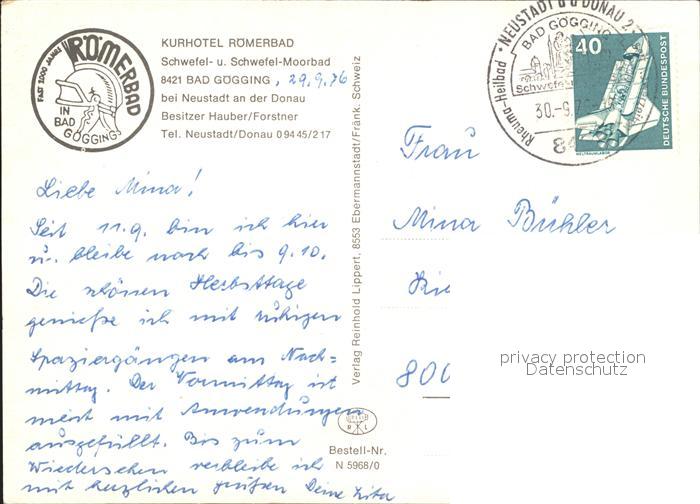 FAST 2000 JAHRE
RÖMERBAD
IN
BAD
GÖGGING
KURHOTEL RÖMERBAD
Schwefel- u. Schwefel-Moorbad
8421 BAD GÖGGING, 29.9.76
bei Neustadt an der Donau
Besitzer Hauber/Forstner
Tel. Neustadt/Donau 09445/217
Liebe Mina!
Seit 11.9. bin ich hier
u. bleibe noch bis 9.10.
Die schönen Herbsttage
genieße ich mit ruhigen
Spaziergängen am Nach=
mittag. Der Vormittag ist
meist mit Anwendungen
ausgefüllt. Bis zum
Wiedersehen verbleibe ich
mit herzlichen Grüßen Deine Zita
Verlag Reinhold Lippert, 8553 Ebermannstadt/Fränk. Schweiz
Bestell-Nr.
N 5968/0
NEUSTADT a d DONAU 2
BAD GÖGGING
Schwefel
30.-9.7
Rheuma-Heilbad
84
40
DEUTSCHE BUNDESPOST
WELTRAUMLABOR
Frau
Mina Bühler
800
privacy protection
Datenschutz